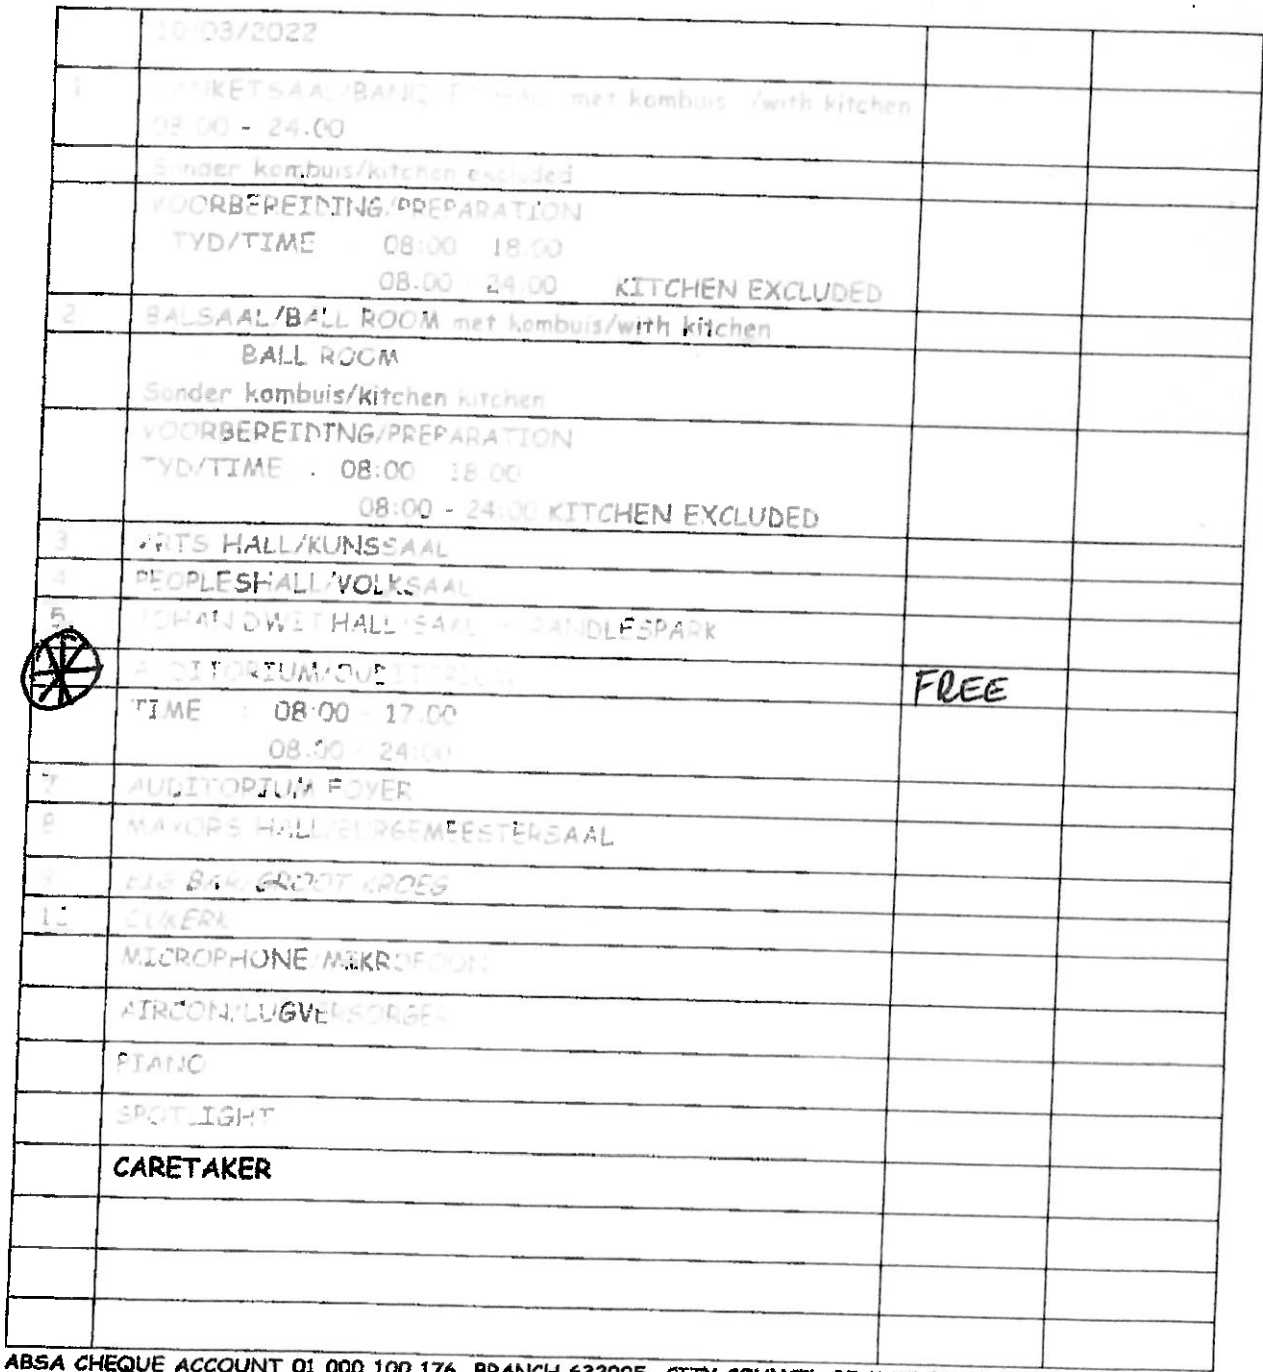 10/03/2022
1 BANKETSAAL/BANQUET met kombuis /with kitchen
08.00 - 24.00
Sonder kombuis/kitchen excluded
VOORBEREIDING/PREPARATION
TYD/TIME 08:00 18.00
08.00 - 24:00 KITCHEN EXCLUDED
2 BALSAAL/BALL ROOM met kombuis/with kitchen
BALL ROOM
Sonder kombuis/kitchen kitchen
VOORBEREIDING/PREPARATION
TYD/TIME . 08:00 18.00
08:00 - 24:00 KITCHEN EXCLUDED
3 ARTS HALL/KUNSSAAL
4 PEOPLESHALL/VOLKSAAL
5. JOHAN DWIT HALL/SAAL - RANDLESPARK
AUDITORIUM/OUDITORIUM FREE
TIME : 08:00 - 17.00
08.00 - 24:00
7 AUDITORIUM FOYER
8 MAYORS HALL/BURGEMEESTERSAAL
9 BIG BAR/GROOT KROEG
10 OUKERK
MICROPHONE/MIKROFOON
AIRCON/LUGVERSORGER
PIANO
SPOTLIGHT
CARETAKER
ABSA CHEQUE ACCOUNT 01 000 100 176 BRANCH